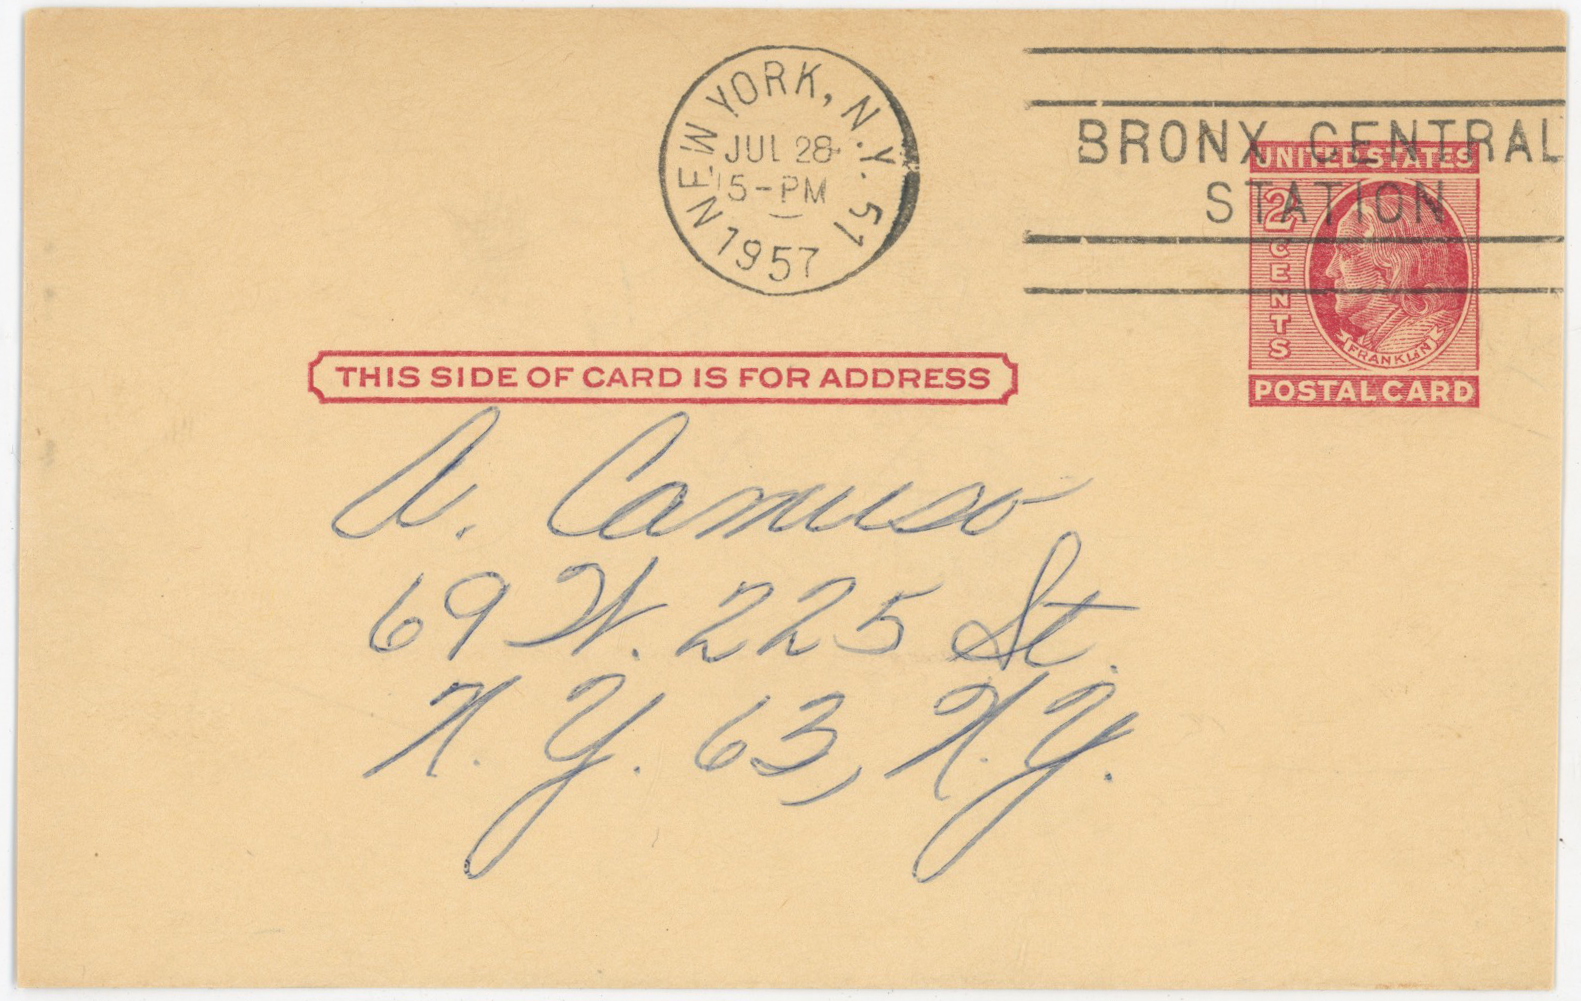 NEW YORK, N.Y. 51
JUL 28
5-PM
1957
BRONX CENTRAL
STATION
UNITED STATES
2 CENTS
FRANKLIN
POSTAL CARD
THIS SIDE OF CARD IS FOR ADDRESS
A. Caruso
69 W. 225 St.
N. Y. 63, N.Y.